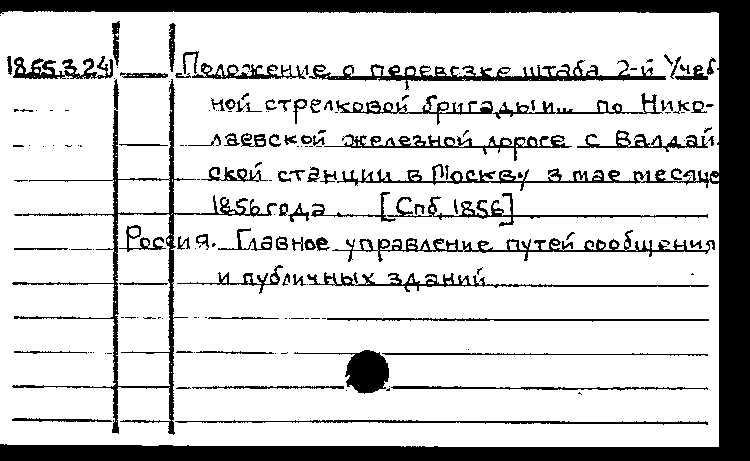 18.65.3.241 Положение о перевозке штаба 2-й Учеб-
ной стрелковой бригады и... по Нико-
лаевской железной дороге с Валдай-
ской станции в Москву в мае месяце
1856 года. [Спб, 1856]
Россия. Главное управление путей сообщения
и публичных зданий